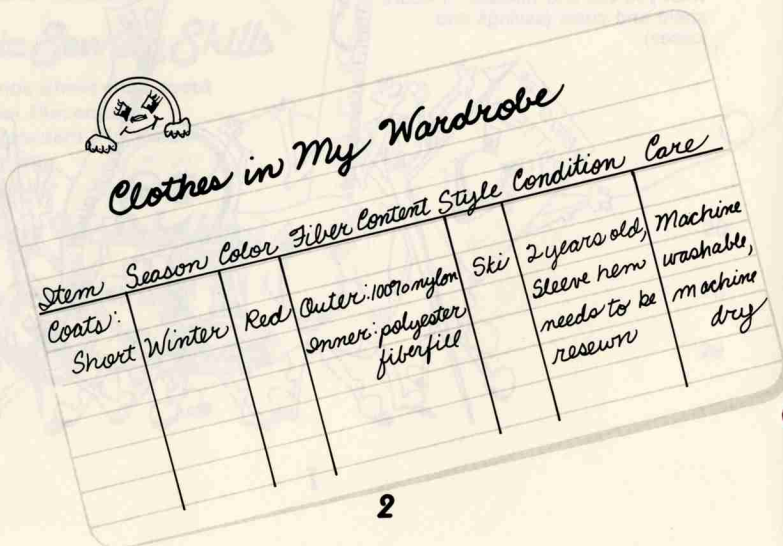 Clothes in My Wardrobe
Item Season Color Fiber Content Style Condition Care
Coats: Short
Winter
Red
Outer: 100% nylon
Inner: polyester
fiberfill
Ski
2 years old,
Sleeve hem
needs to be
resewn
Machine
washable,
machine
dry
2